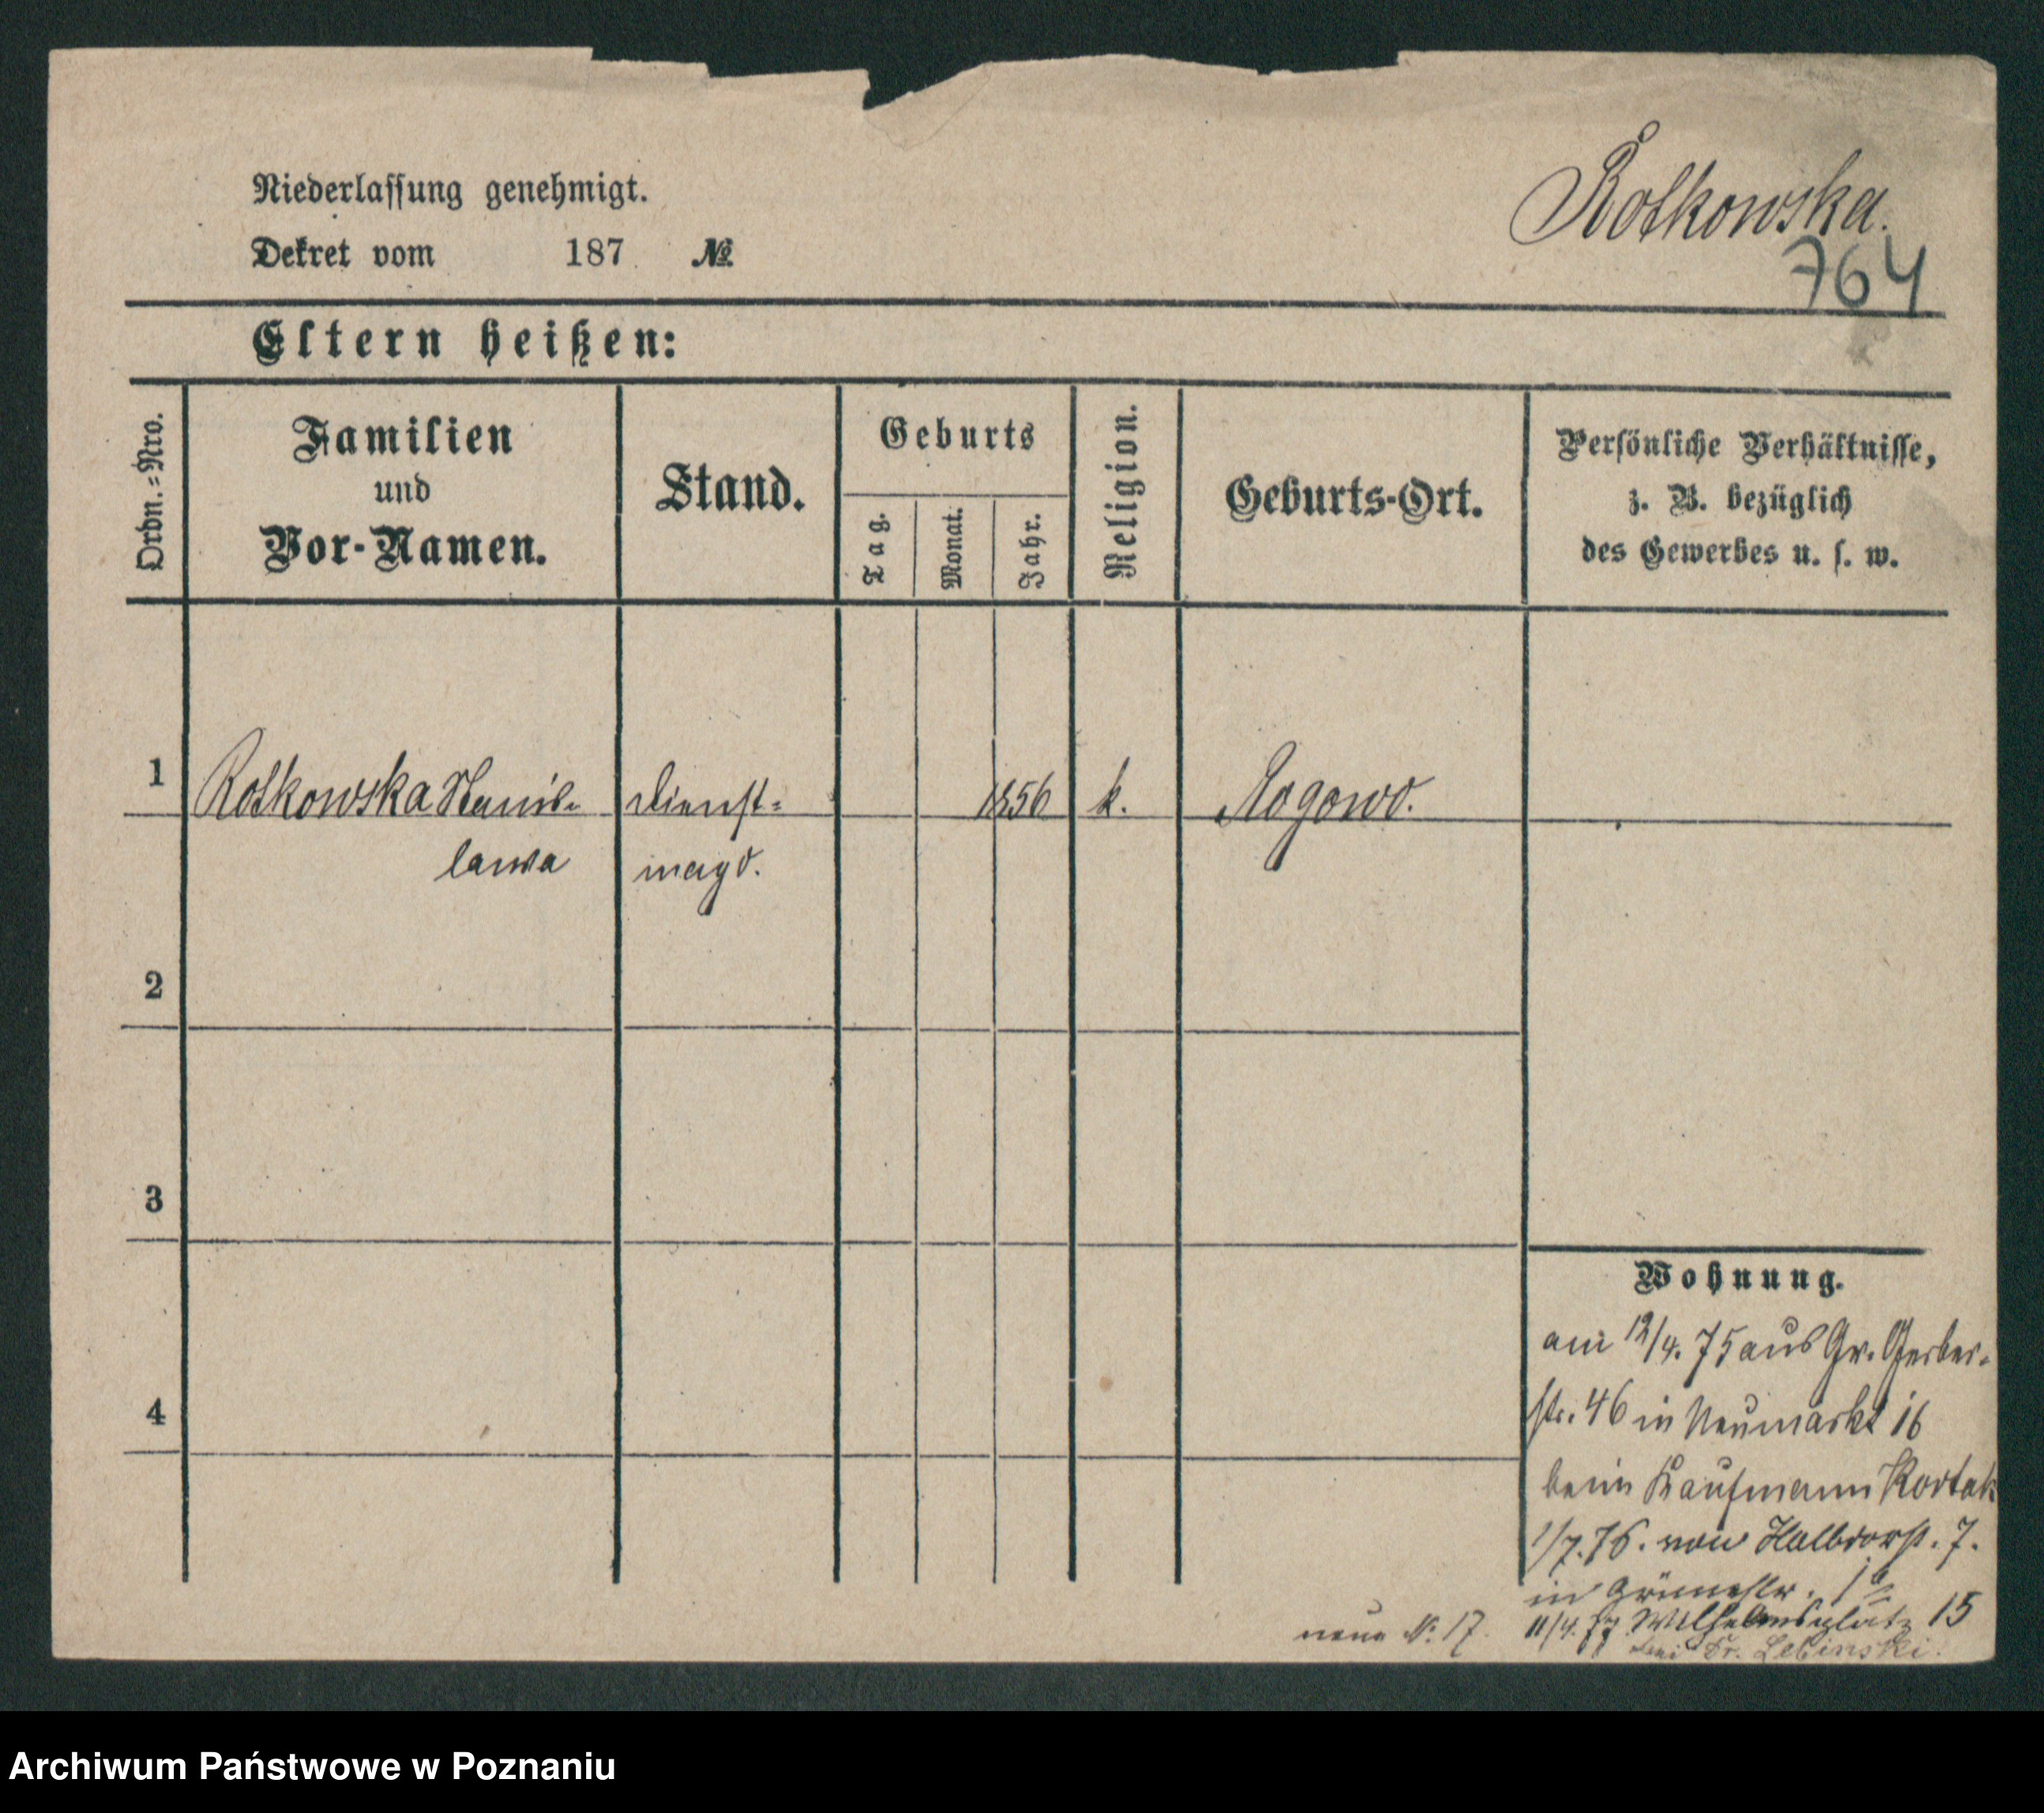 Rotkowska.
Niederlassung genehmigt.
Dekret vom 187 №
764
Eltern heißen:
Ordn.-Nro.
Familien
und
Vor-Namen.
Stand.
Geburts
Tag.
Monat.
Jahr.
Religion.
Geburts-Ort.
Persönliche Verhältnisse,
z. B. bezüglich
des Gewerbes u. s. w.
1 Rotkowska Stanis- Dienst- 1856 k. Rogowo.
lawa magd.
2
3
4
Wohnung.
am 12/4. 75 aus Gr. Gerber-
str. 46 in Neumarkt 16
beim Kaufmann
1/7. 76. von Halbdorfst. 7.
in Grünestr.
neue №. 17.
11/4. 77 Wilhelmsplatz 15
bei Dr. Lebinski.
Archiwum Państwowe w Poznaniu